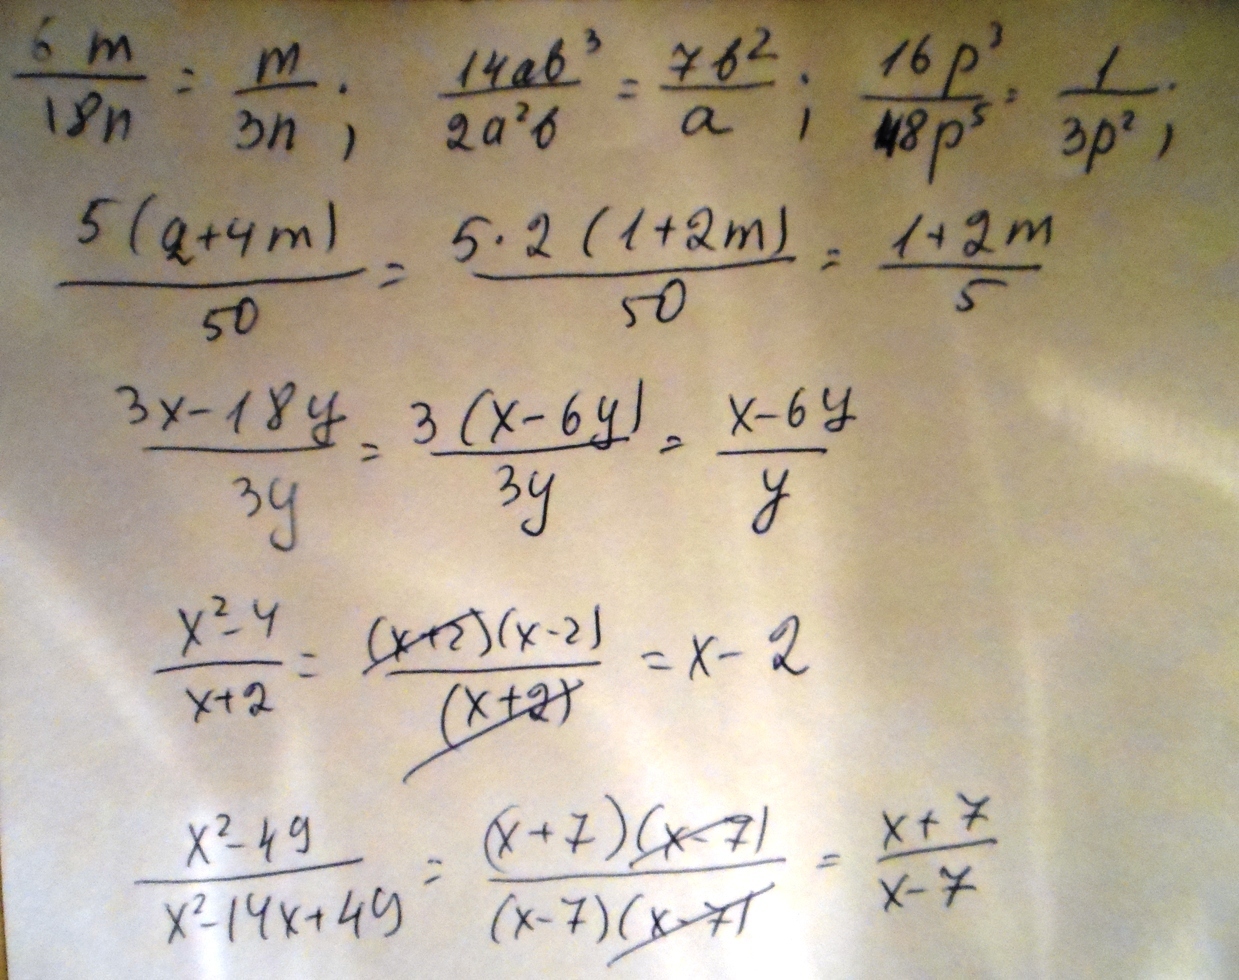 6m/18n = m/3n; 14ab³/2a²b = 7b²/a; 16p³/48p⁵ = 1/3p²;
5(2+4m)/50 = 5·2(1+2m)/50 = 1+2m/5
3x-18y/3y = 3(x-6y)/3y = x-6y/y
x²-4/x+2 = (x+2)(x-2)/(x+2) = x-2
x²-49/x²-14x+49 = (x+7)(x-7)/(x-7)(x-7) = x+7/x-7